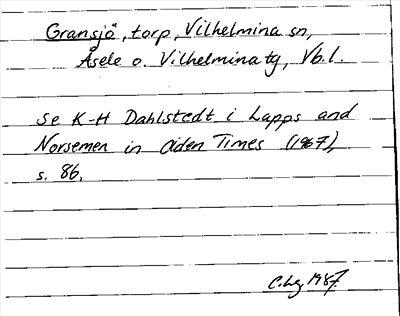 Gransjö, torp, Vilhelmina sn,
Åsele o. Vilhelmina tg, Vb.l.
Se K-H Dahlstedt i Lapps and
Norsemen in Olden Times (1967),
s. 86.
C.Lg 1987